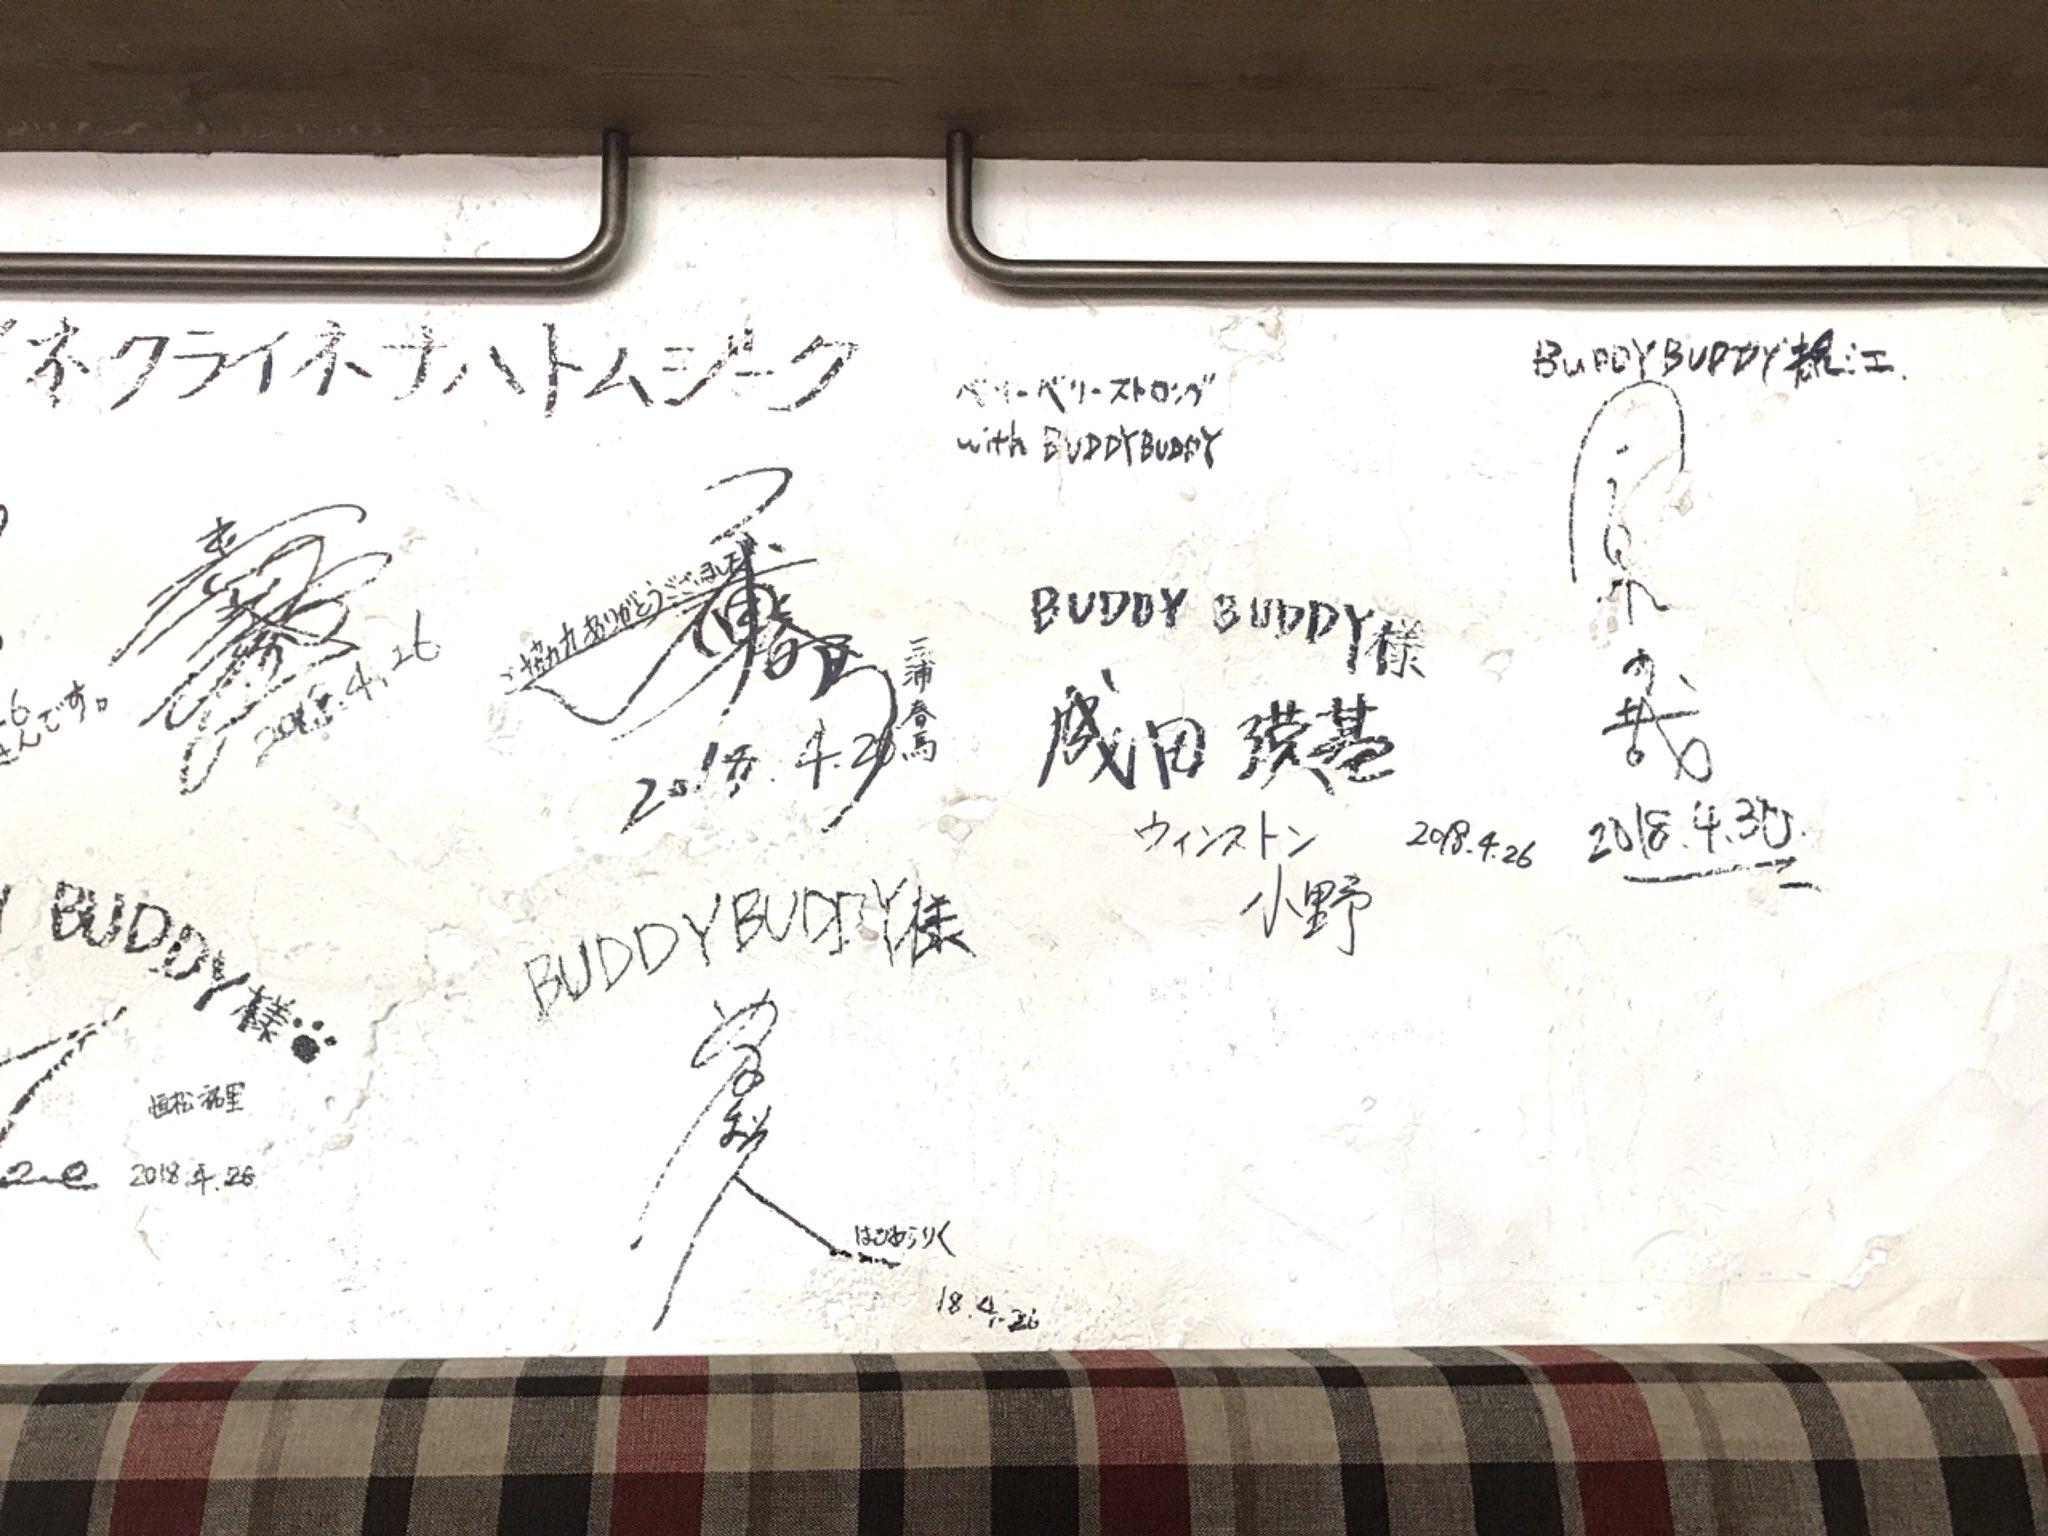 ネクライネナハトムジーク
ベリーベリーストロング
with BUDDYBUDDY
BUDDYBUDDY
2018.4.26
ご協力ありがとうございました
三浦春馬
2018.4.26
BUDDY BUDDY様
成田瑛基
ウィンストン
小野
2018.4.26
2018.4.30
んです。
BUDDY様
恒松祐里
2018.4.26
BUDDYBUDDY様
はぎわらりく
18.4.26